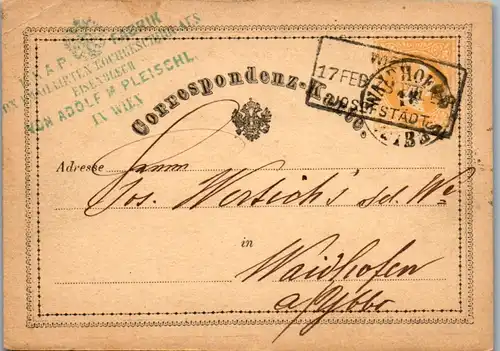 K.K. A. P. FABRIK
VON EMAILLIRTEN KOCHGESCHIRR AUS
EISENBLECH
VON ADOLF M PLEISCHL
IN WIEN
Correspondenz-Karte.
WIEN
17 FEB
JOSEFSTADT
WAIDHOFEN
18
2
73
Adresse
Jos. Wertich's sel. We
in
Waidhofen
a/Ybbs